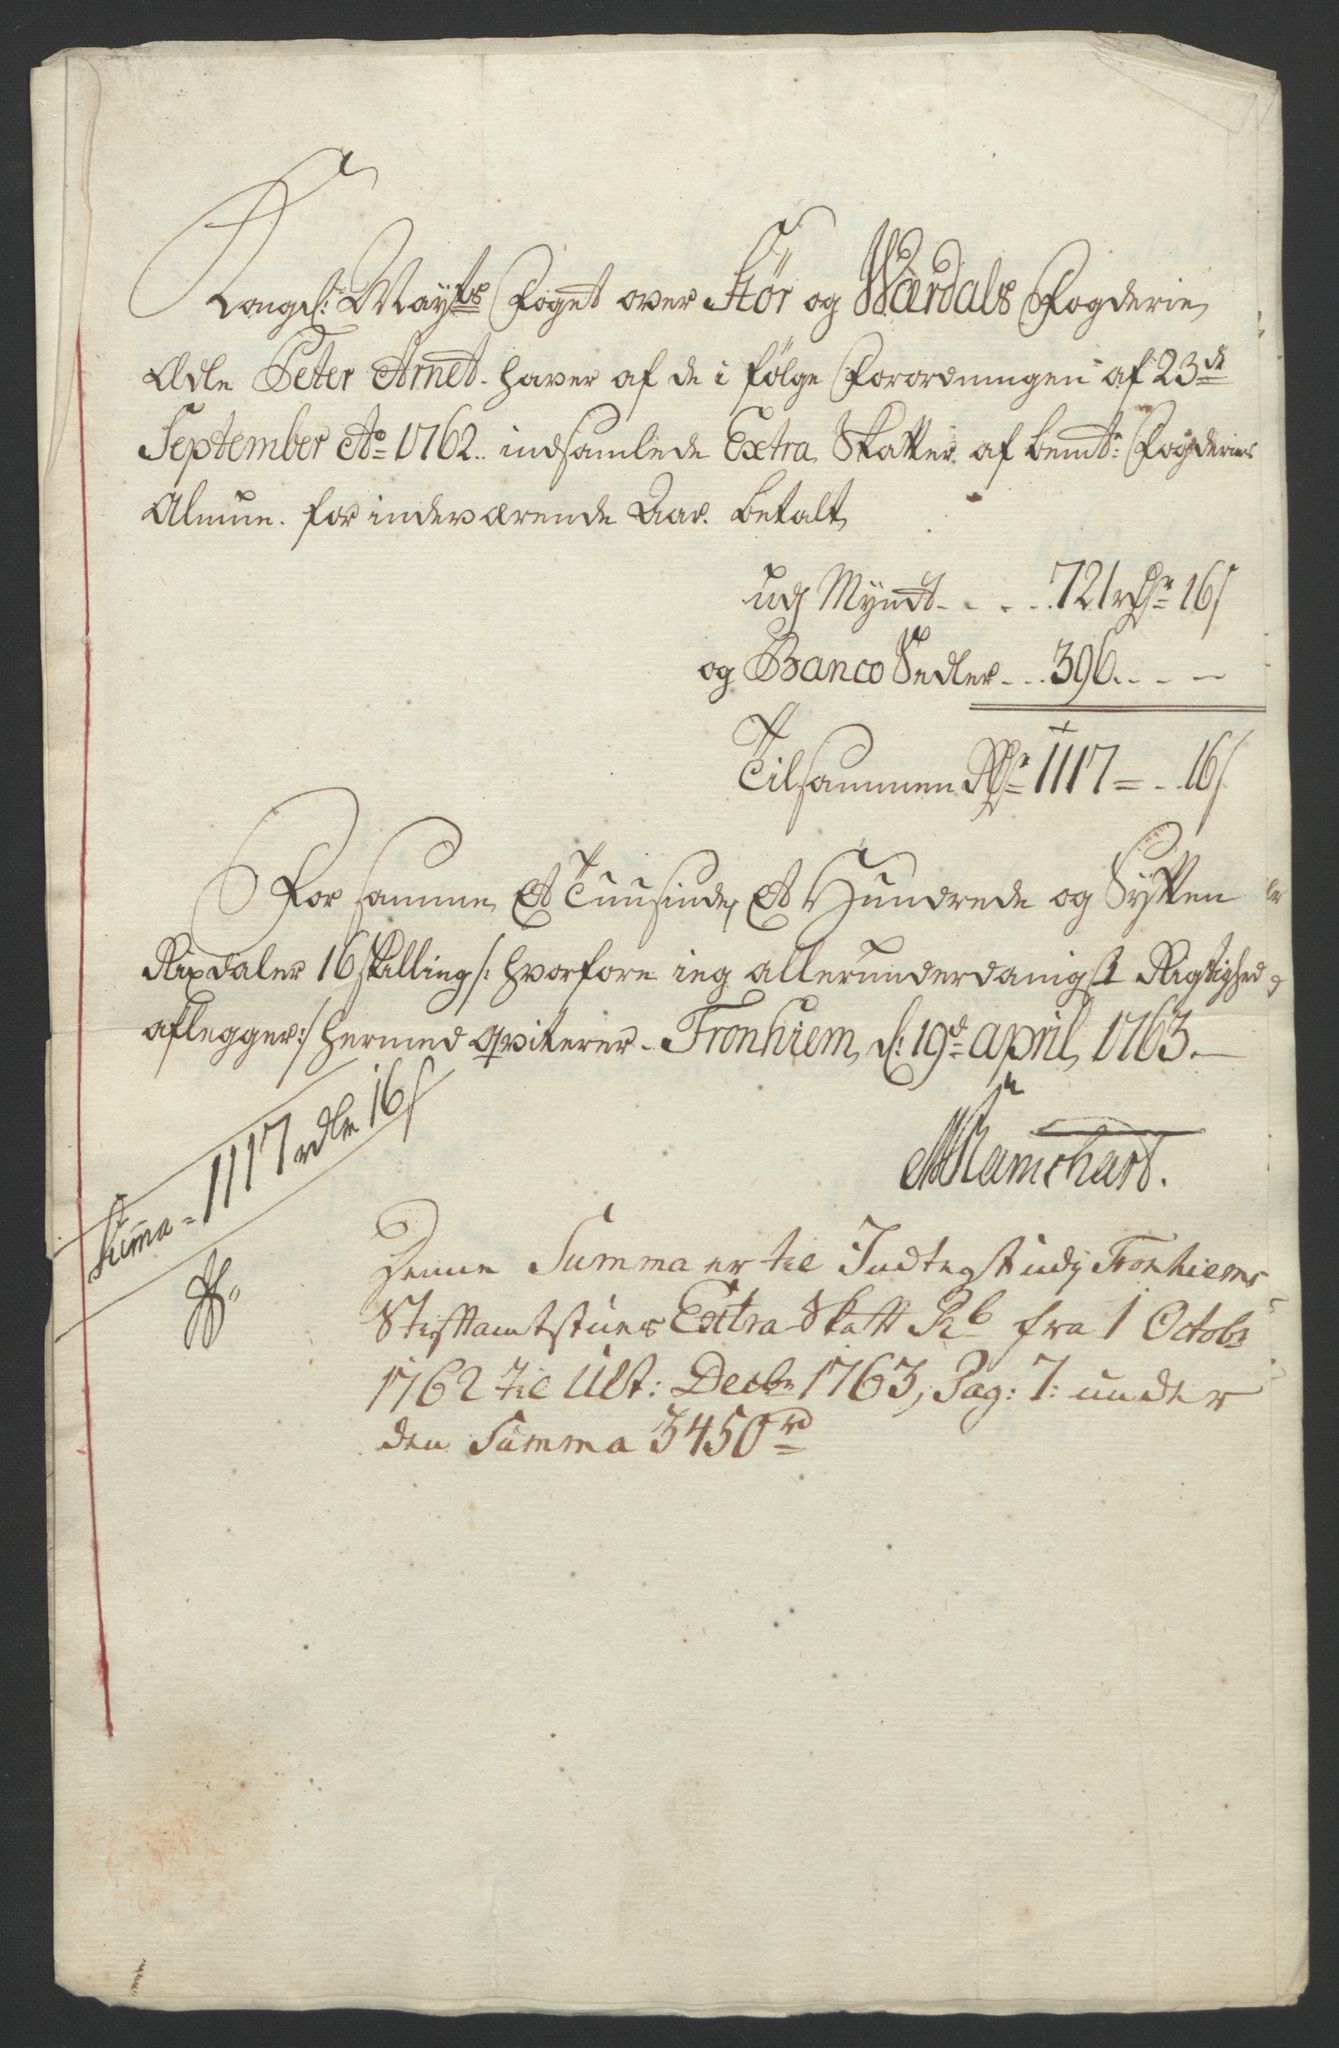 Kongel: Mayts Foget over Stør og Wærdals Fogderie,
Ædle Peter Arnet. haver af de i følge Forordningen af 23de
September Ao 1762. indsamlede Extra Skatter af bemte Fogderies
Almue. for indeværende Aar. betalt,
udj Myndt . . . . 721 rdr 16 s
og Banco Sedler . . . 396. . - -
Tilsammen Rdr 1117 = . . 16 s
For samme Et Tuusinde, Et Hundrede og Sytten
Rixdaler 16 skilling /: hvorfore ieg allerunderdanigst Rigtighed
aflegger :/ hermed qviterer. Tronhiem, d: 19d april, 1763.
Summa = 1117 rdlr 16 s
Denne Summa er til Indtegst udj Tronhiems
Stiftamtstues Extra Skatt Rb fra 1 Octobr
1762 til Ult: Decbr 1763, Pag: 7: under
den Summa 3450 rd